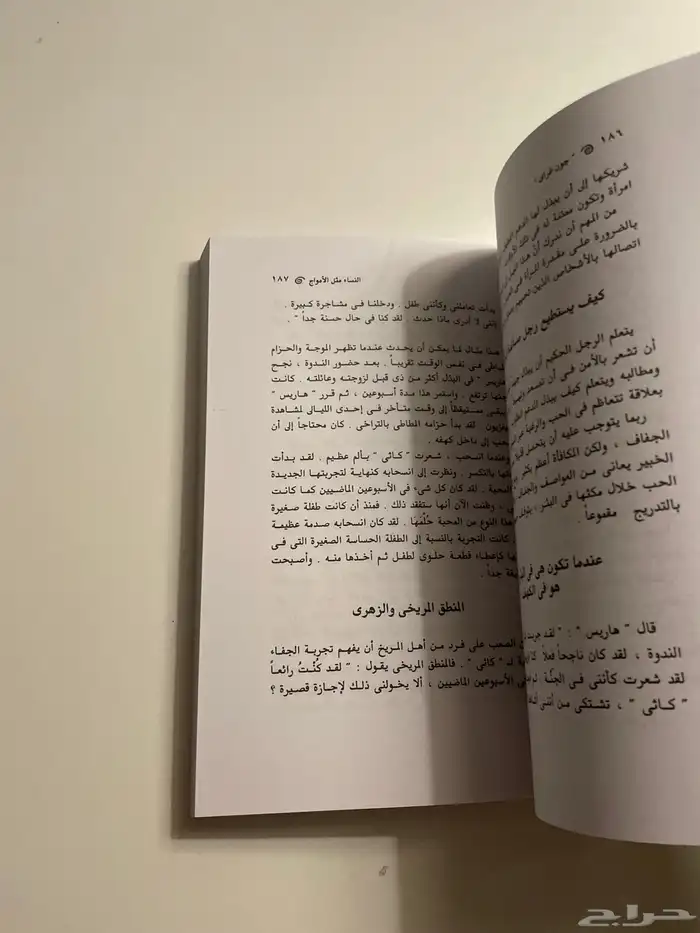 ١٨٦ " جون غراى "
شريكها إلى أن يبذل لها الدعم
امرأة وتكون ممتنة له فى تلك
من المهم أن ندرك أن هذا
بالضرورة على مقدرة المرأة فى
اتصالها بالأشخاص الذين
كيف يستطيع رجل
يتعلم الرجل الحكيم أن يبذل
أن تشعر بالأمن فى أن تصعد
ومطالبه ويتعلم كيف يبذل الدعم
بعلاقة تتعاظم فى الحب والرغبة
ربما يتوجب عليه أن يتحمل
الجفاف ، ولكن المكافأة أعظم بكثير
الخبير يعانى من العواصف والجفاف
الحب خلال مكثها فى البئر ،
بالتدريج مقموعاً .
عندما تكون هى فى
هو فى الكهف
قال " هاريس " : " لقد
الندوة ، لقد كان ناجحاً فعلاً
لقد شعرت كأننى فى الجنة
" كاثى " ، تشتكى من أننى
النساء مثل الأمواج ١٨٧
بدأت تعاملنى وكأننى طفل . ودخلنا فى مشاجرة كبيرة .
لا أدرى ماذا حدث . لقد كنا فى حال حسنة جداً " .
هذا مثال لما يمكن أن يحدث عندما تظهر الموجة والحزام
فى نفس الوقت تقريباً . بعد حضور الندوة ، نجح
هاريس " فى البذل أكثر من ذى قبل لزوجته وعائلته . كانت
ترتفع . واستمر هذا مدة أسبوعين ، ثم قرر " هاريس "
مستيقظاً إلى وقت متأخر فى إحدى الليالى لمشاهدة
لقد بدأ حزامه المطاطى بالتراخى . كان محتاجاً إلى أن
إلى داخل كهفه .
وعندما انسحب ، شعرت " كاثى " بألم عظيم . لقد بدأت
بالتكسر . ونظرت إلى انسحابه كنهاية لتجربتها الجديدة
المحبة . لقد كان كل شىء فى الأسبوعين الماضيين كما كانت
، وظنت الآن أنها ستفقد ذلك . فمنذ أن كانت طفلة صغيرة
هذا النوع من المحبة حُلْمَهَا . لقد كان انسحابه صدمة عظيمة
كانت التجربة بالنسبة إلى الطفلة الحساسة الصغيرة التى فى
كإعطاء قطعة حلوى لطفل ثم أخذها منه . وأصبحت
جداً .
المنطق المريخى والزهرى
الصعب على فرد من أهل المريخ أن يفهم تجربة الجفاء
لـ " كاثى " . فالمنطق المريخى يقول : " لقد كُنْتُ رائعاً
الأسبوعين الماضيين ، ألا يخولنى ذلك لإجازة قصيرة ؟
حراج